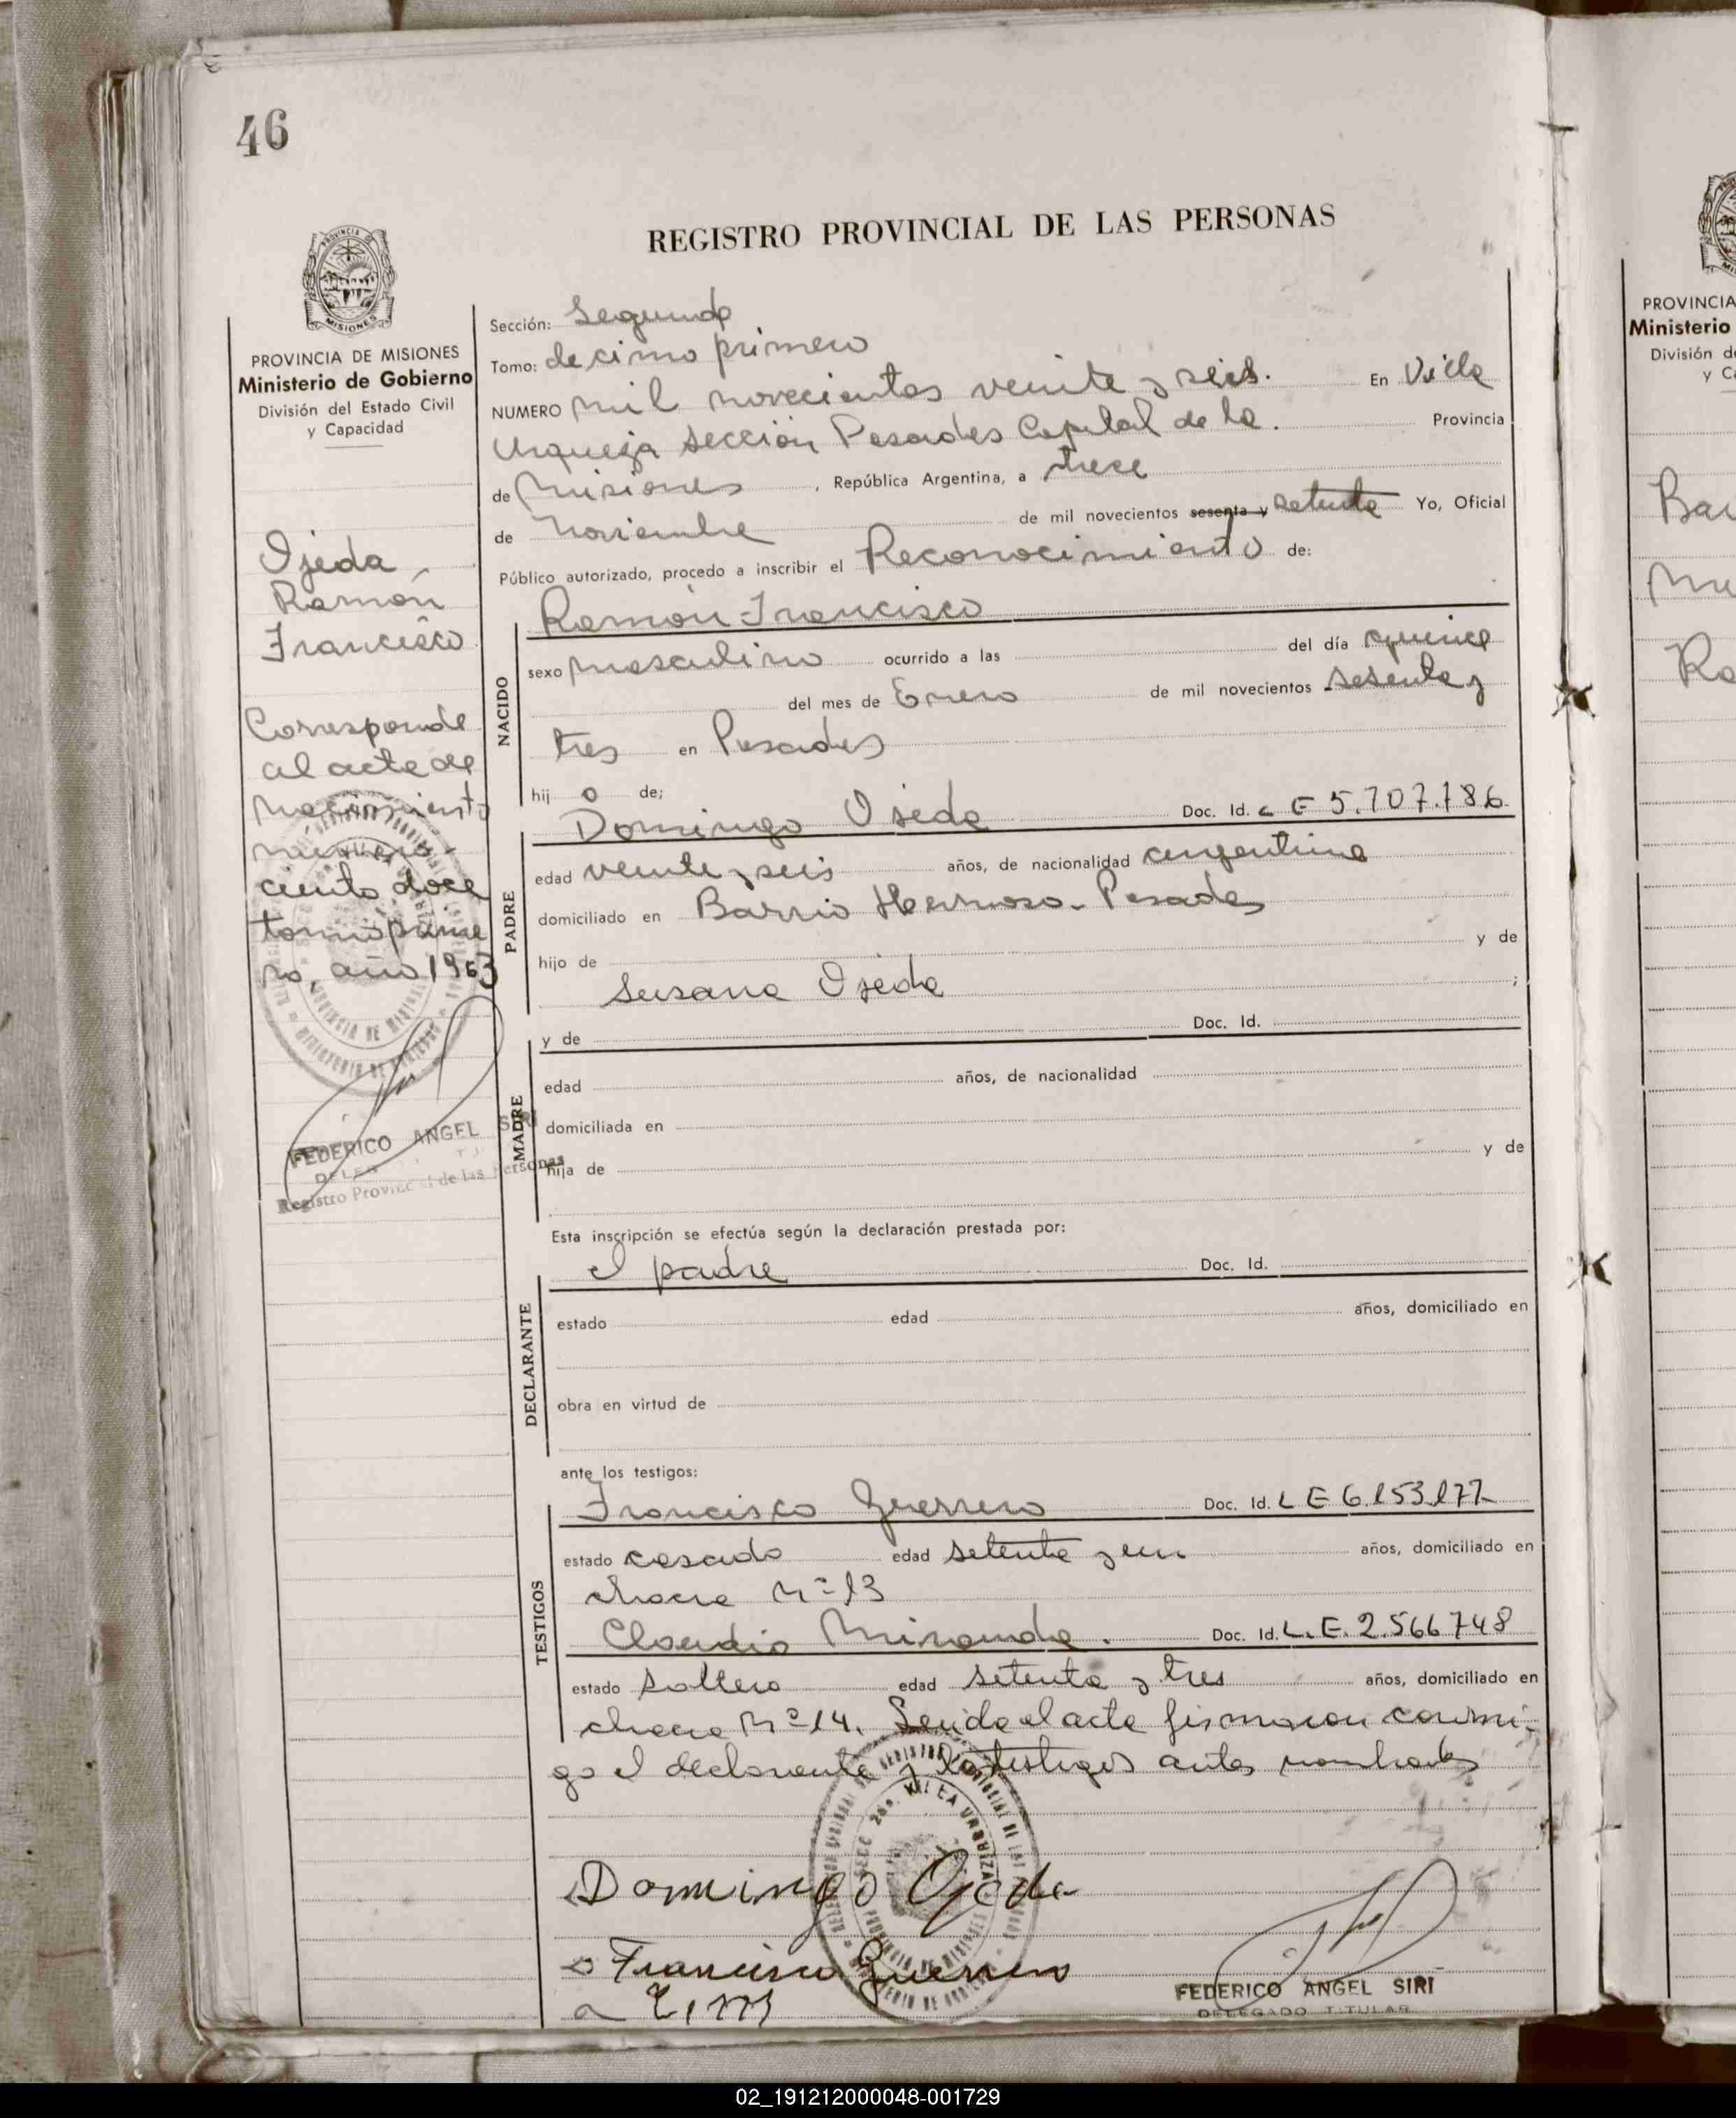 46
REGISTRO PROVINCIAL DE LAS PERSONAS
PROVINCIA DE MISIONES
Ministerio de Gobierno
División del Estado Civil
y Capacidad
Ojeda
Ramón
Francisco
Corresponde
al acta de
nacimiento
número
ciento doce
tomo prime
ro, año 1963
FEDERICO ANGEL SIRI
Registro Provincial de las Personas
Sección: Segunda
Tomo: decimo primero
NUMERO mil novecientos veinte y seis. En Villa
Urquiza sección Posadas Capital de la. Provincia
de Misiones, República Argentina, a trece
de Noviembre de mil novecientos sesenta y setenta Yo, Oficial
Público autorizado, procedo a inscribir el Reconocimiento de:
Ramón Francisco
NACIDO
sexo masculino ocurrido a las del día quince
del mes de Enero de mil novecientos sesenta y
tres en Posadas
hij o de;
Domingo Ojeda Doc. Id. L E 5.707.786
PADRE
edad veinte y seis años, de nacionalidad argentina
domiciliado en Barrio Hermoso - Posadas
hijo de y de
Susana Ojeda ;
y de Doc. Id.
MADRE
edad años, de nacionalidad
domiciliada en
hija de y de
Esta inscripción se efectúa según la declaración prestada por:
el padre Doc. Id.
DECLARANTE
estado edad años, domiciliado en
obra en virtud de
ante los testigos:
Francisco Guerrero Doc. Id. L E 6.153.177
TESTIGOS
estado casado edad setenta y un años, domiciliado en
chacra Nº 13
Claudio Miranda. Doc. Id. L.E. 2.566.748
estado soltero edad setenta y tres años, domiciliado en
chacra Nº 14. Leida el acta firmaron conmi-
go el declarante y los testigos antes nombrados
Domingo Ojeda
Francisco Guerrero
FEDERICO ANGEL SIRI
DELEGADO TITULAR
PROVINCIA
Ministerio
División d
02_191212000048-001729